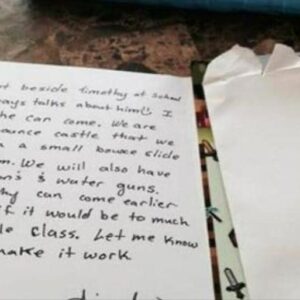 beside timothy at school
ays talks about him I
he can come. We are
ounce castle that we
a small bouce slide
m. We will also have
& water guns.
hy can come earlier
if it would be to much
le class. Let me know
make it work